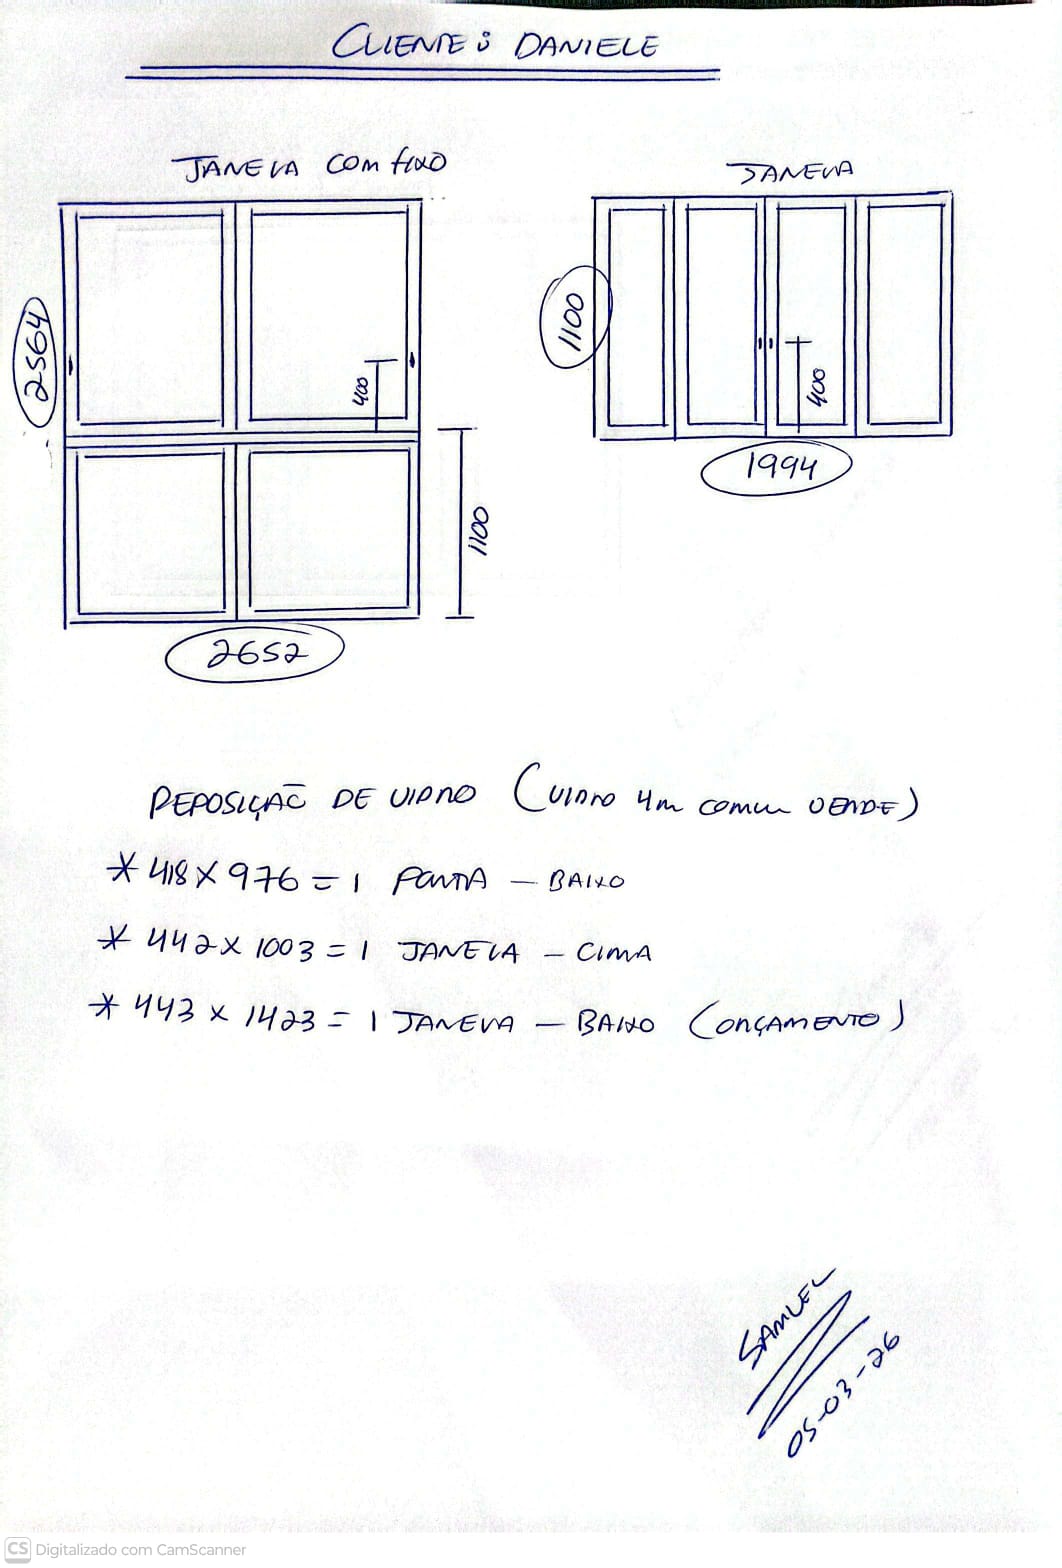 CLIENTE: DANIELE
JANELA COM FIXO
JANELA
2564
400
1100
2652
1100
400
1994
REPOSIÇÃO DE VIDRO (VIDRO 4m COMUM VERDE)
* 418 X 976 = 1 PORTA - BAIXO
* 442 X 1003 = 1 JANELA - CIMA
* 443 X 1423 = 1 JANELA - BAIXO (ORÇAMENTO)
SAMUEL
05-03-26
CS Digitalizado com CamScanner